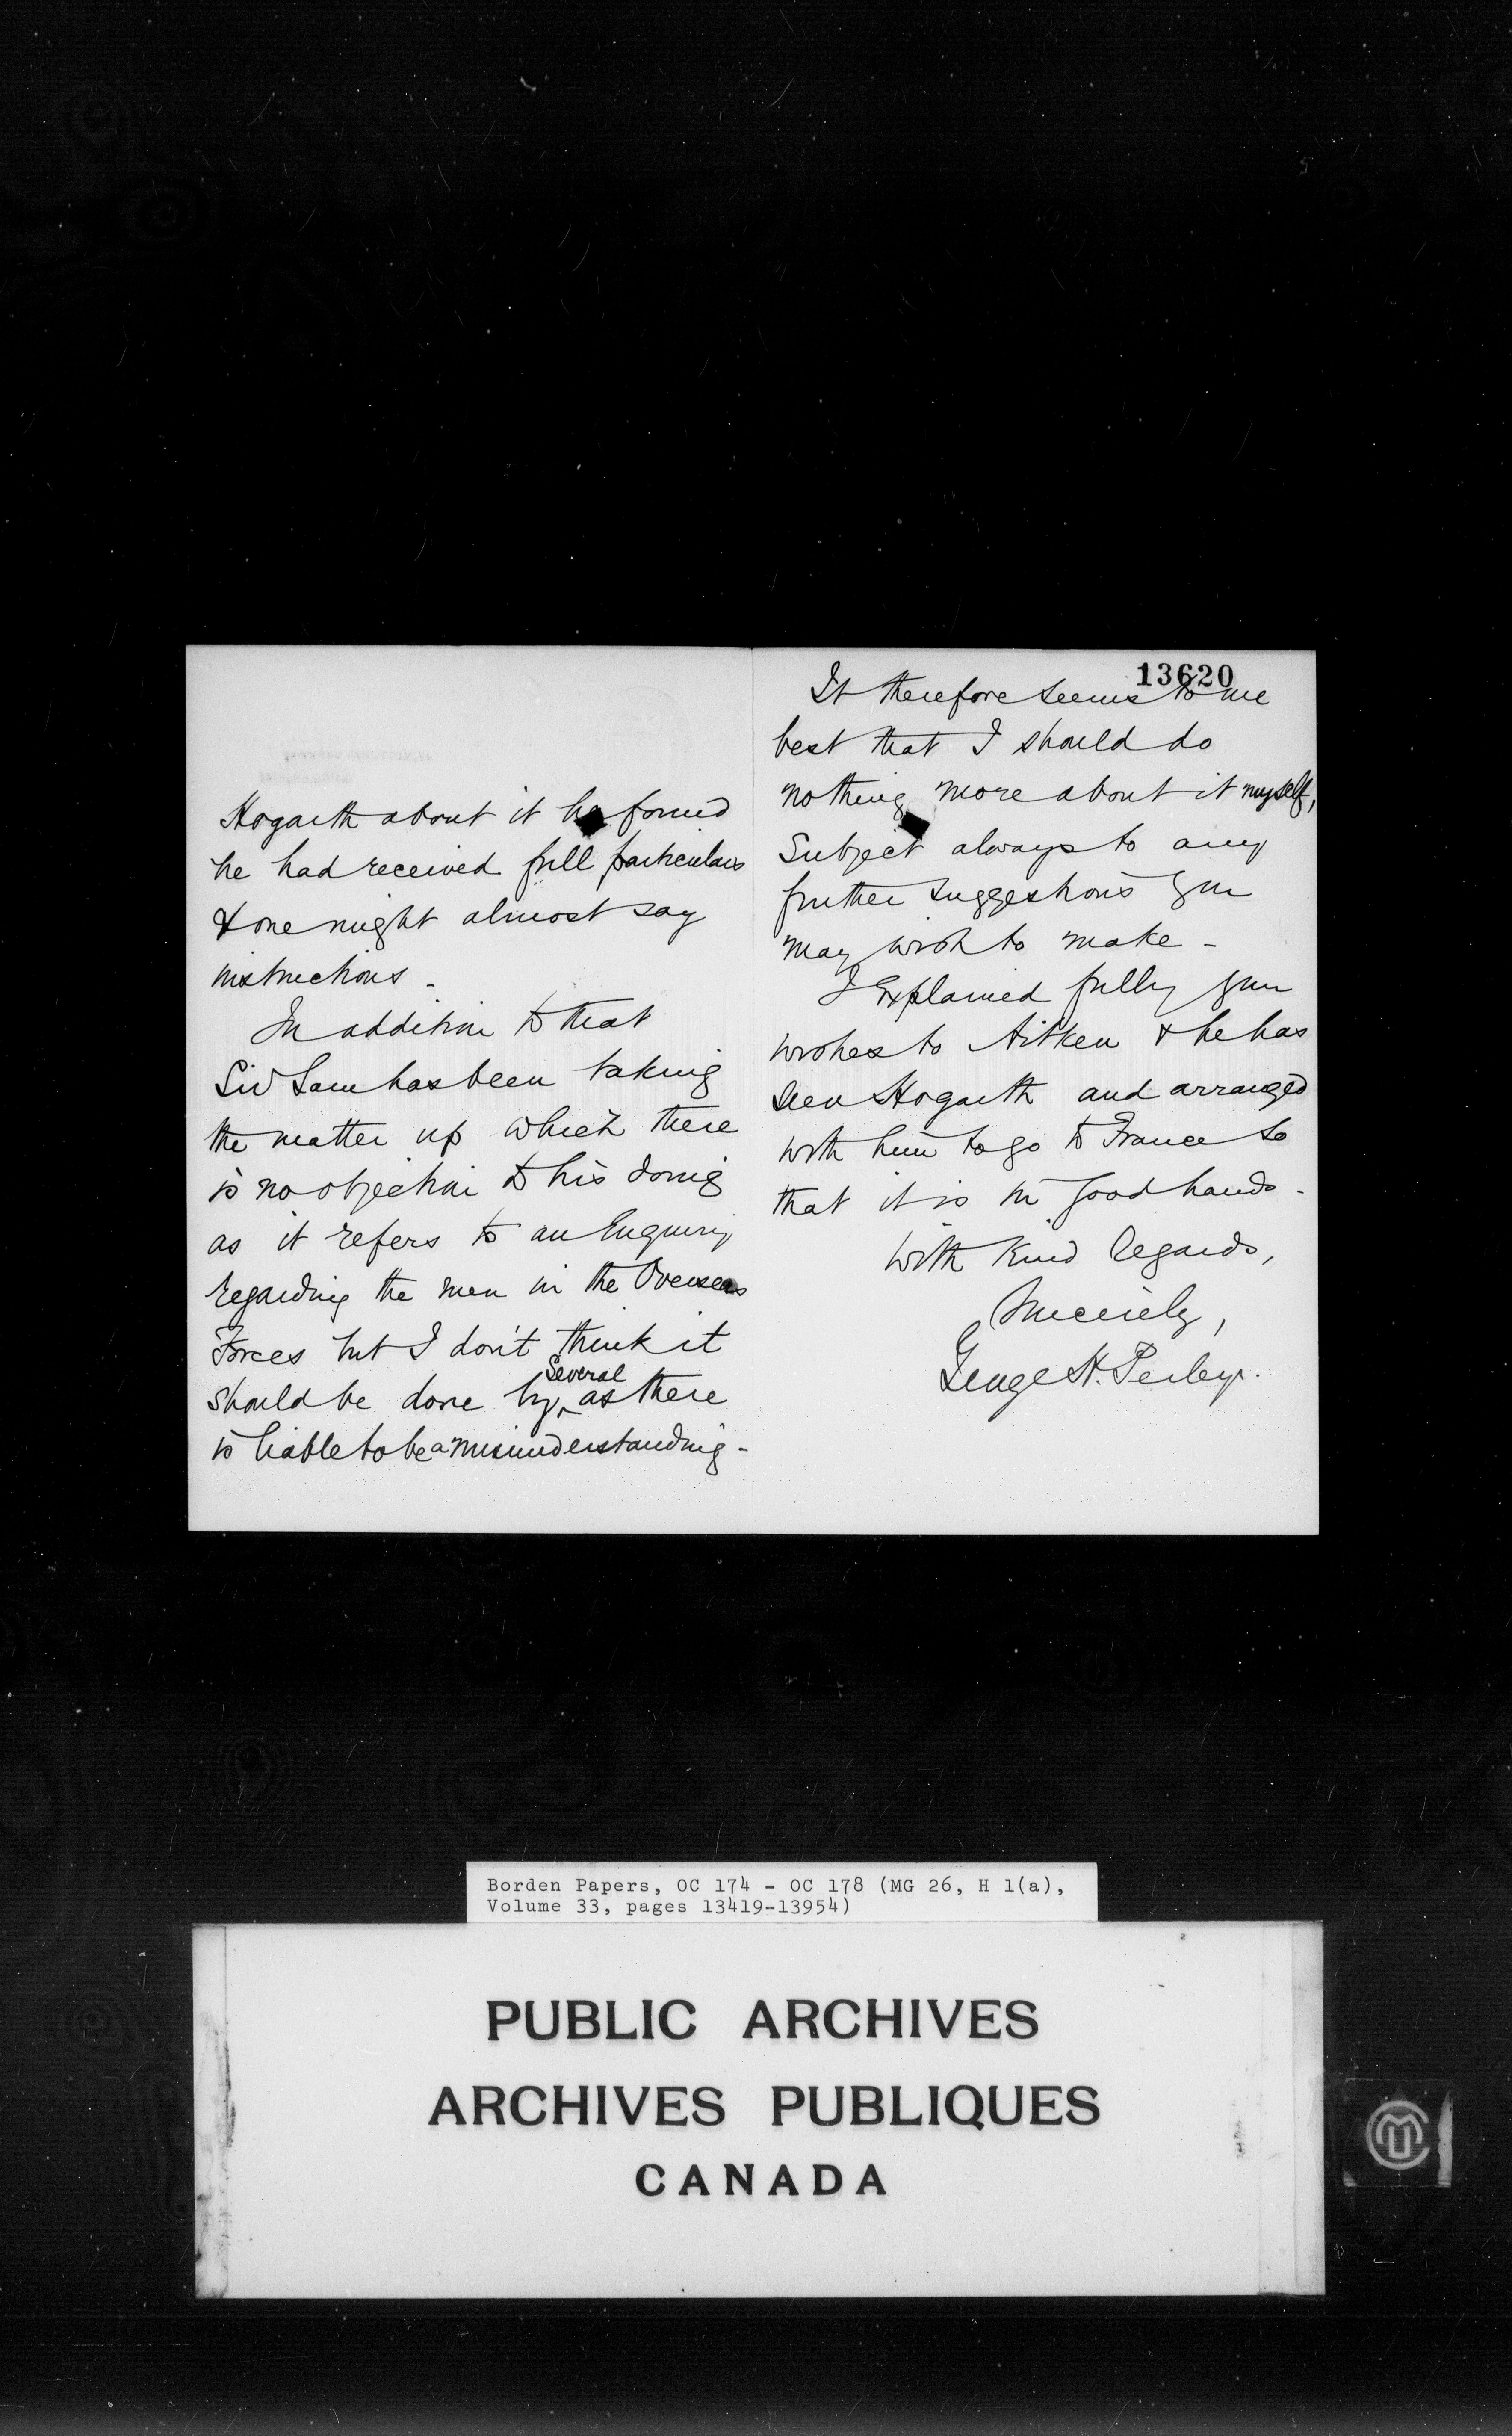 Hogarth about it he found
he had received full particulars
& one might almost say
instructions -
In addition to that
Sir Sam has been taking
the matter up which there
is no objection to his doing
as it refers to an Enquiry
regarding the men in the Overseas
Forces but I don't think it
Several
should be done by ^ as there
is liable to be a misunderstanding -
13620
It therefore seems to me
best that I should do
nothing more about it myself,
Subject always to any
further suggestions you
may wish to make -
I Explained fully your
wishes to Aitken & he has
seen Hogarth and arranged
with him to go to France so
that it is in good hands -
With Kind Regards,
Sincerely,
George H. Perley.
Borden Papers, OC 174 - OC 178 (MG 26, H 1(a),
Volume 33, pages 13419-13954)
PUBLIC ARCHIVES
ARCHIVES PUBLIQUES
CANADA